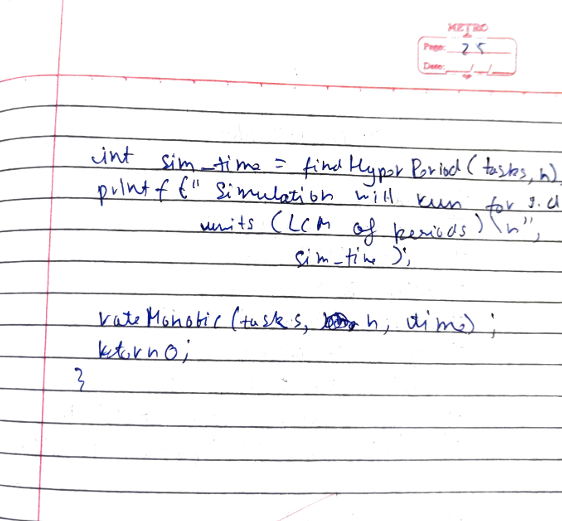 METRO
Page: 25
Date: / /
int sim_time = findHyperPeriod(tasks, n)
printf("Simulation will run for %d
units (LCM of periods)\n",
sim_time);
rateMonotic(tasks, n, time);
return 0;
}